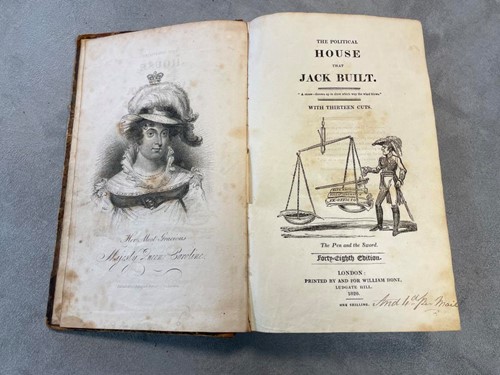 Her Most Gracious
Majesty Queen Caroline.
THE POLITICAL
HOUSE
THAT
JACK BUILT.
"A straw—thrown up to show which way the wind blows."
WITH THIRTEEN CUTS.
The Pen and the Sword.
Forty-Eighth Edition.
LONDON:
PRINTED BY AND FOR WILLIAM HONE,
LUDGATE HILL.
1820.
ONE SHILLING.